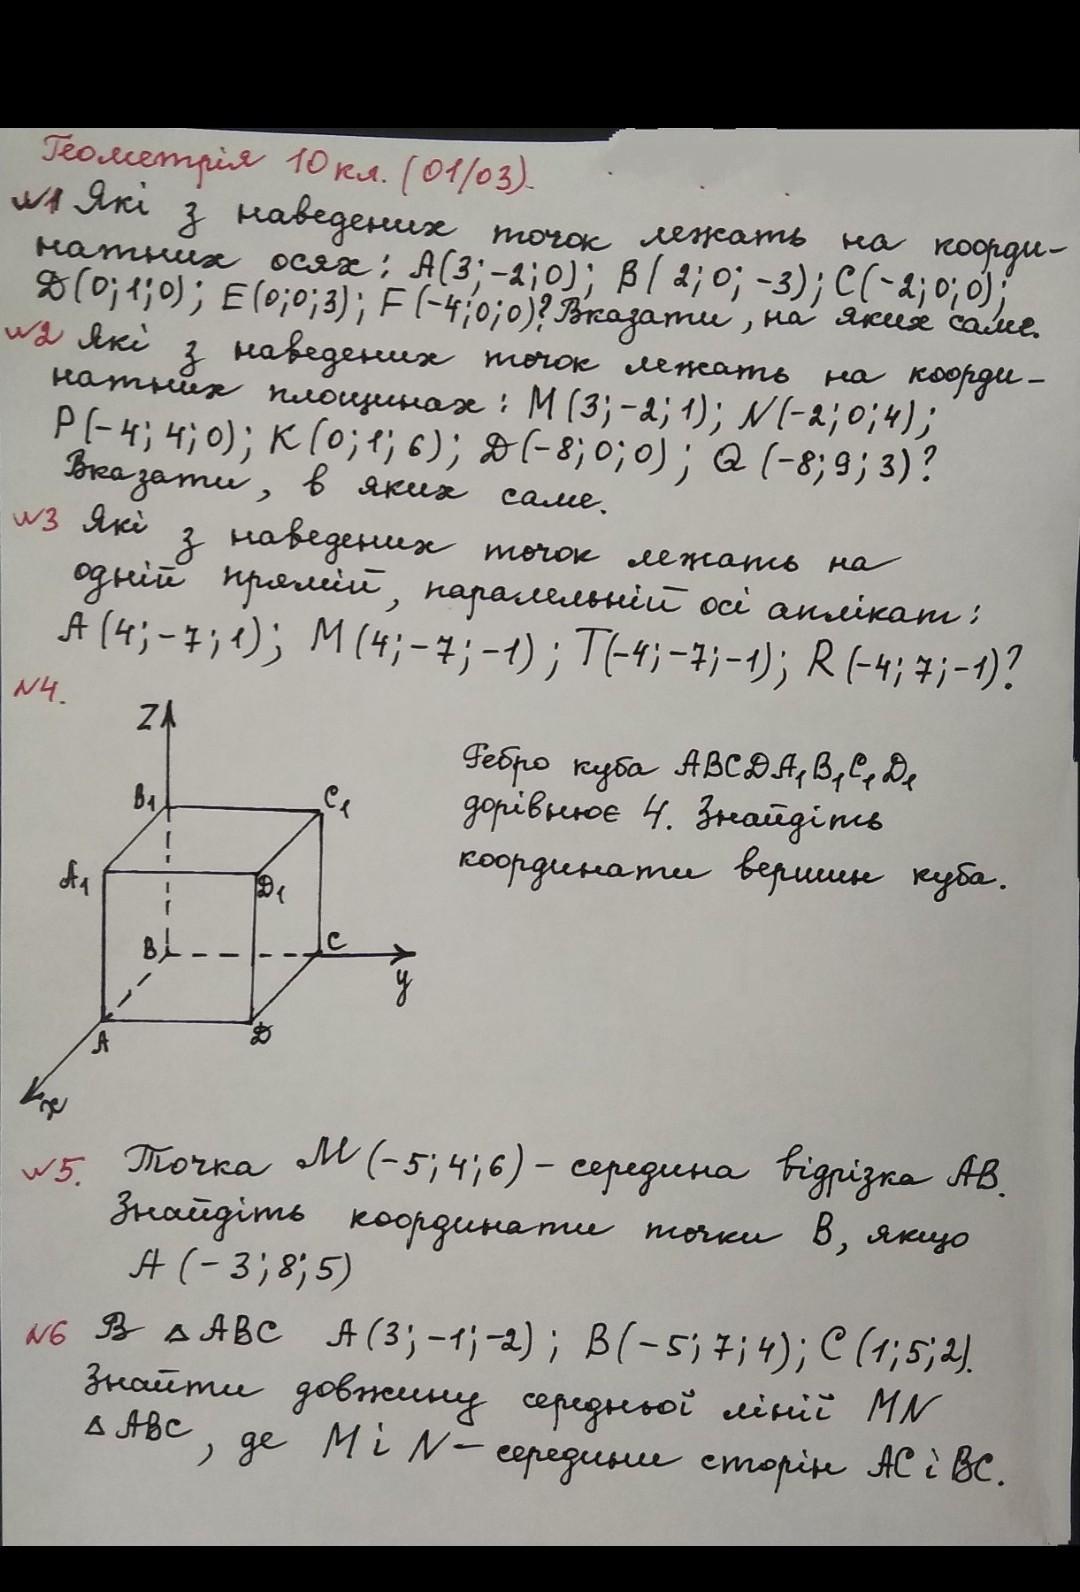 Геометрія 10 кл. (01/03).
№1 Які з наведених точок лежать на коорди-
натних осях: A(3; -2; 0); B( 2; 0; -3); C(-2; 0; 0);
D(0; 1; 0); E(0; 0; 3); F(-4; 0; 0)? Вказати, на яких саме.
№2 Які з наведених точок лежать на коорди-
натних площинах: M(3; -2; 1); N(-2; 0; 4);
P(-4; 4; 0); K(0; 1; 6); D(-8; 0; 0); Q(-8; 9; 3)?
Вказати, в яких саме.
№3 Які з наведених точок лежать на
одній прямій, паралельній осі аплікат:
A(4; -7; 1); M(4; -7; -1); T(-4; -7; -1); R(-4; 7; -1)?
№4.
Z
B₁
C₁
A₁
D₁
B
C
y
A
D
x
Ребро куба ABCDA₁B₁C₁D₁
дорівнює 4. Знайдіть
координати вершин куба.
№5. Точка M(-5; 4; 6) - середина відрізка AB.
Знайдіть координати точки B, якщо
A(-3; 8; 5)
№6 В △ABC A(3; -1; -2); B(-5; 7; 4); C(1; 5; 2).
Знайти довжину середньої лінії MN
△ABC, де M і N - середини сторін AC і BC.